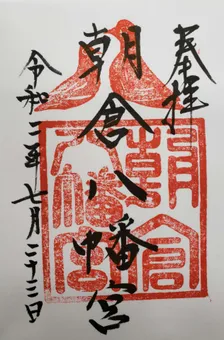 奉拝
朝倉八幡宮
令和二年七月二十三日
朝倉
八幡宮